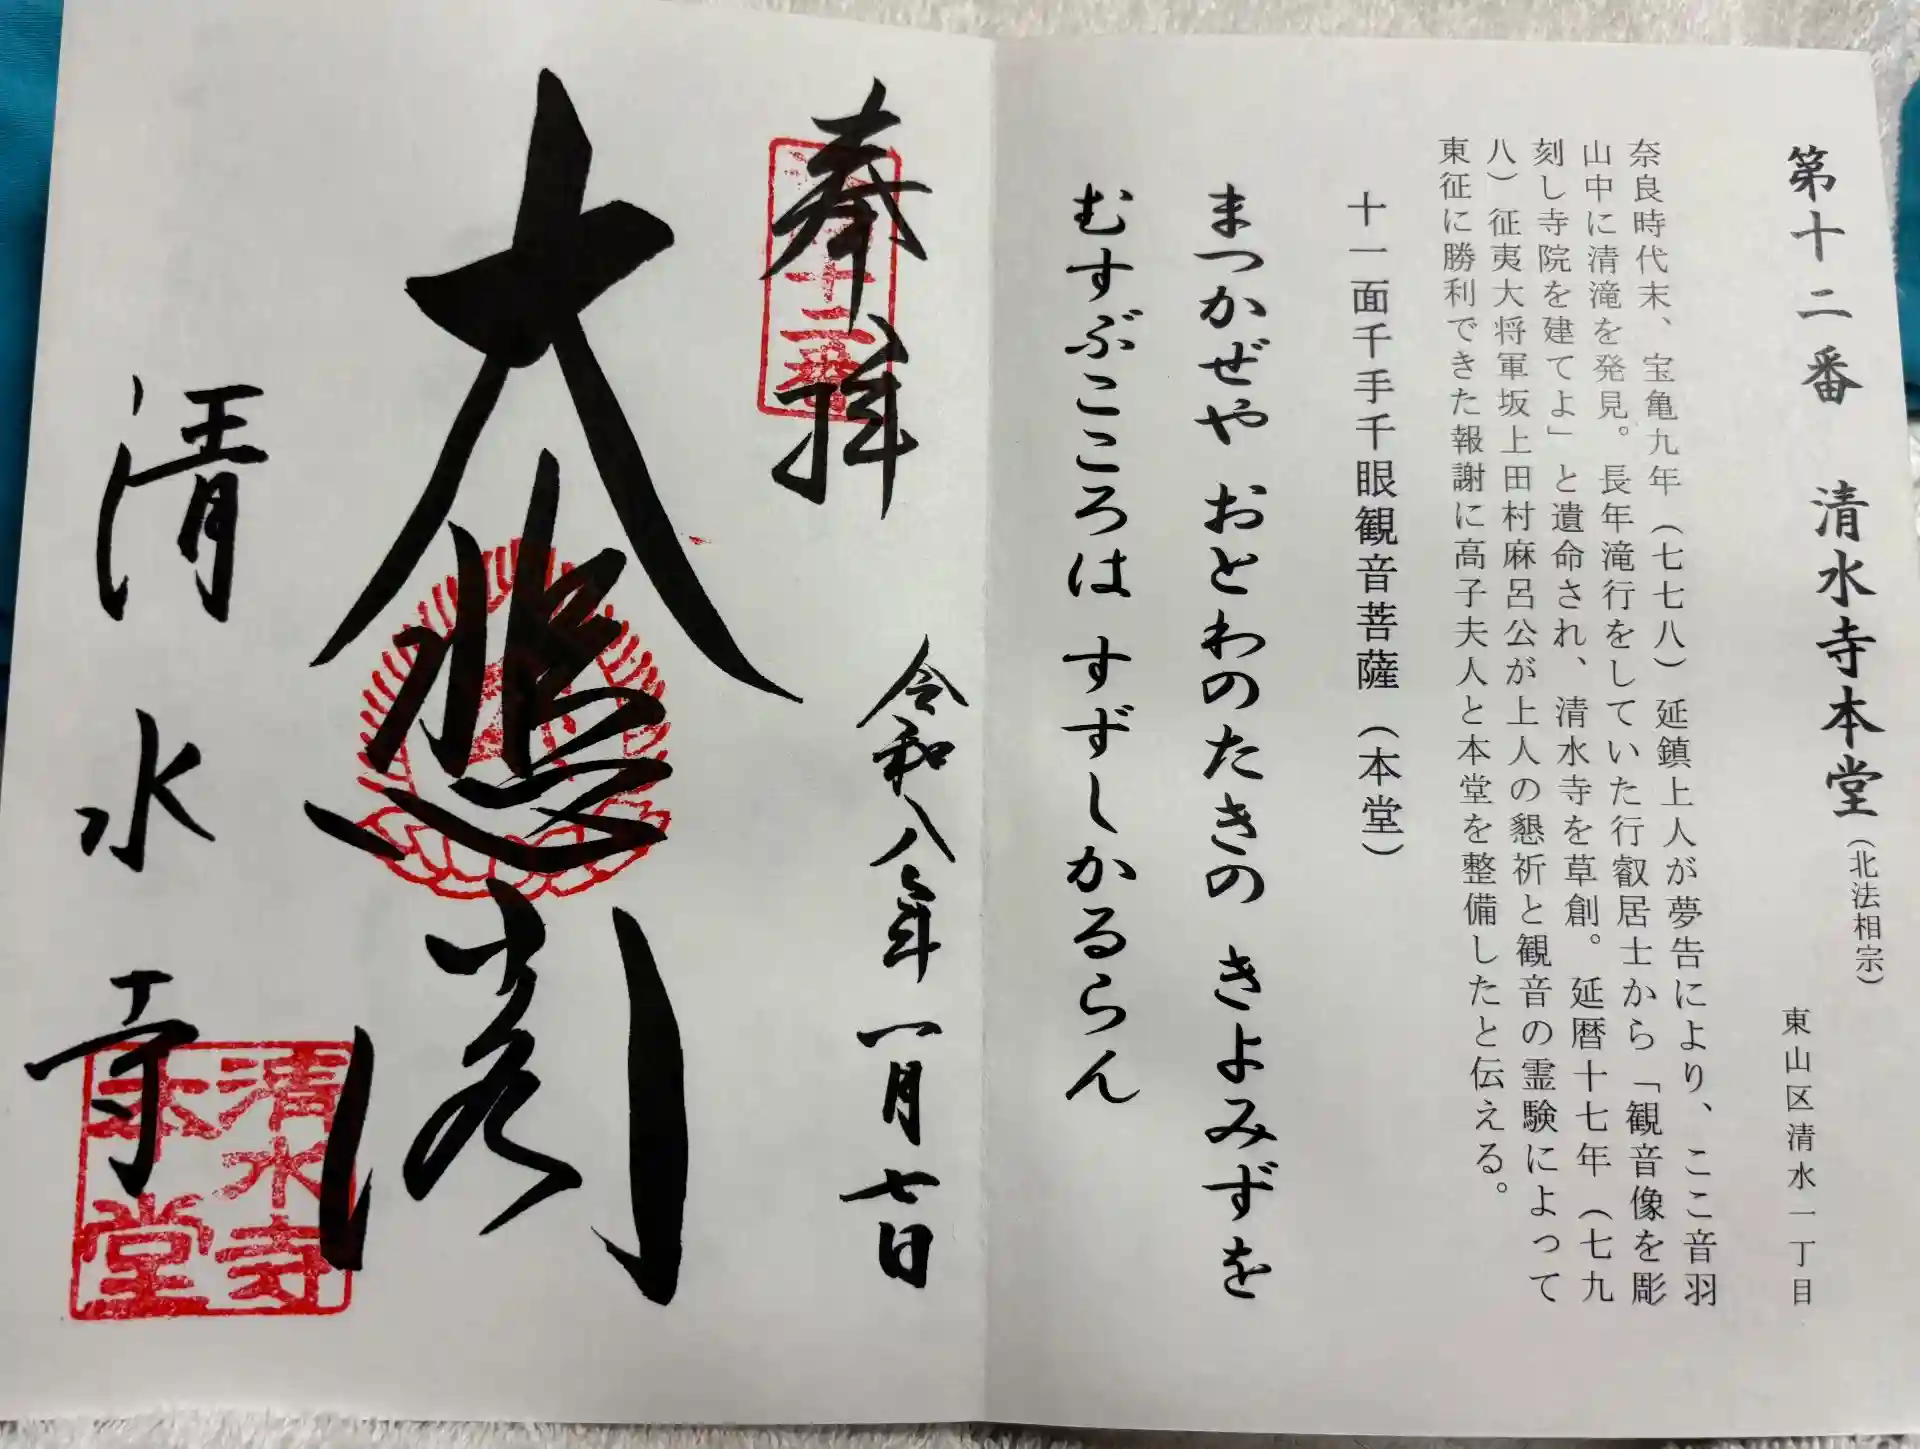 第十二番 清水寺本堂（北法相宗）
東山区清水一丁目
奈良時代末、宝亀九年（七七八）延鎮上人が夢告により、ここ音羽
山中に清滝を発見。長年滝行をしていた行叡居士から「観音像を彫
刻し寺院を建てよ」と遺命され、清水寺を草創。延暦十七年（七九
八）征夷大将軍坂上田村麻呂公が上人の懇祈と観音の霊験によって
東征に勝利できた報謝に高子夫人と本堂を整備したと伝える。
十一面千手千眼観音菩薩（本堂）
まつかぜや おとわのたきの きよみずを
むすぶこころは すずしかるらん
奉拝
令和八年一月七日
大悲閣
清水寺
清水寺
本堂